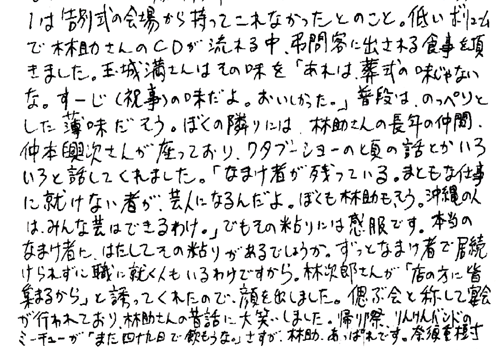 しは告別式の会場から持ってこれなかったとのこと。低いボリューム
で林助さんのCDが流れる中、弔問客に出される食事を頂
きました。玉城満さんはその味を「あれは、葬式の味じゃない
な。すーじ(祝事)の味だよ。おいしかった。」普段は、のっぺりと
した薄味だそう。ぼくの隣りには、林助さんの長年の仲間、
仲本興次さんが座っており、ワタブーショーの頃の話とかいろ
いろと話してくれました。「なまけ者が残っている。まともな仕事
に就けない者が、芸人になるんだよ。ぼくも林助もそう。沖縄の人
は、みんな芸はできるわけ。」でもその粘りには感服です。本当の
なまけ者に、はたしてその粘りがあるでしょうか。ずっとなまけ者で居続
けられずに職に就く人もいるわけですから。林次郎さんが「店の方に皆
集まるから」と誘ってくれたので、顔を出しました。偲ぶ会と称して宴会
が行われており、林助さんの昔話に大笑いしました。帰り際、りんけんバンドの
ミーチューが「また四十九日で飲もうな。」さすが、林助、あっぱれです。奈須重樹